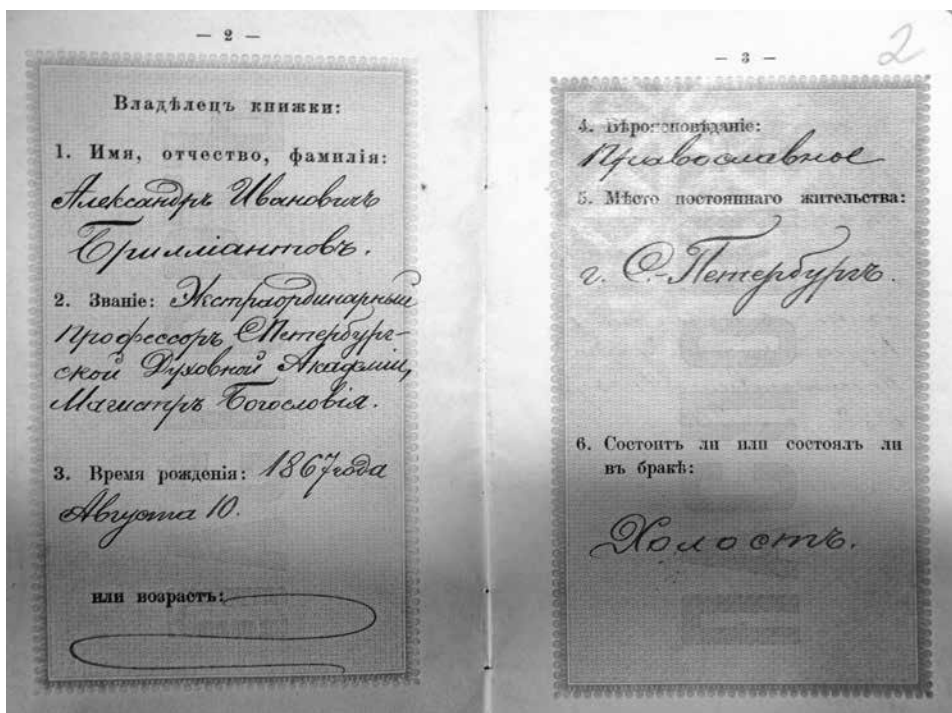 — 2 —
Владѣлецъ книжки:
1. Имя, отчество, фамилія:
Александръ Ивановичъ
Брилліантовъ.
2. Званіе: Экстраординарный
профессоръ СПетербург-
ской Духовной Академіи,
Магистръ Богословія.
3. Время рожденія: 1867 года
Августа 10.
или возрастъ:
— 3 —
2
4. Вѣроисповѣданіе:
Православное
5. Мѣсто постояннаго жительства:
г. С.-Петербургъ.
6. Состоитъ ли или состоялъ ли
въ бракѣ:
Холостъ.